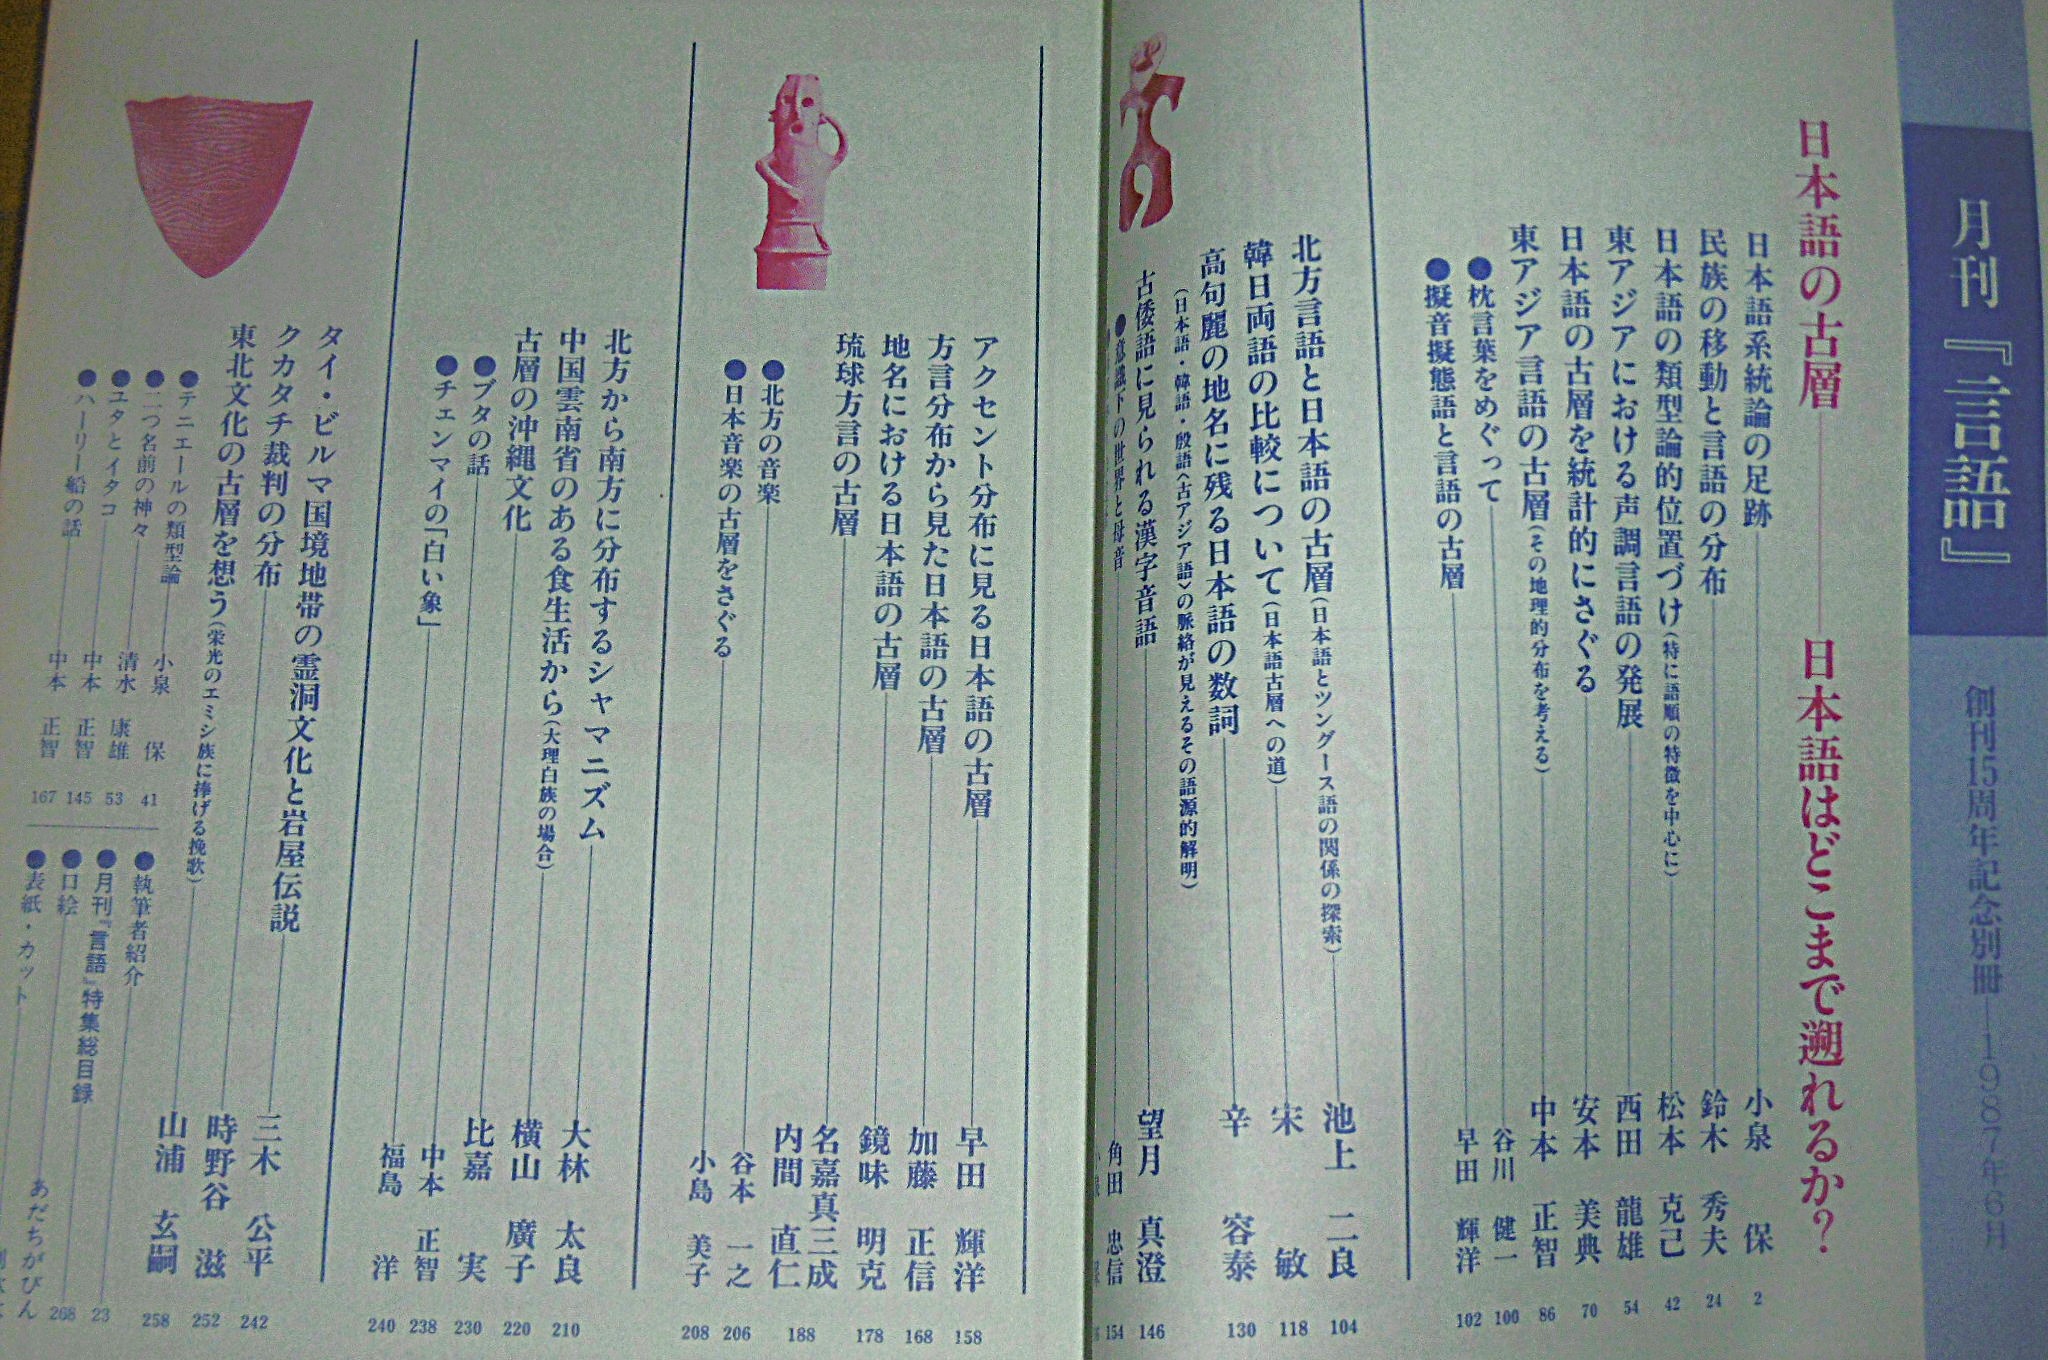 月刊『言語』 創刊15周年記念別冊―1987年6月
日本語の古層――日本語はどこまで遡れるか?
日本語系統論の足跡 小泉 保 2
民族の移動と言語の分布 鈴木 秀夫 24
日本語の類型論的位置づけ(特に語順の特徴を中心に) 松本 克己 42
東アジアにおける声調言語の発展 西田 龍雄 54
日本語の古層を統計的にさぐる 安本 美典 70
東アジア言語の古層(その地理的分布を考える) 中本 正智 86
●枕言葉をめぐって 谷川 健一 100
●擬音擬態語と言語の古層 早田 輝洋 102
北方言語と日本語の古層(日本語とツングース語の関係の探索) 池上 二良 104
韓日両語の比較について(日本語古層への道) 宋 敏 118
高句麗の地名に残る日本語の数詞 辛 容泰 130
(日本語・韓語・殷語〈古アジア語〉の脈絡が見えるその語源的解明)
古倭語に見られる漢字音語 望月 真澄 146
●意識下の世界と母音 角田 忠信 154
アクセント分布に見る日本語の古層 早田 輝洋 158
方言分布から見た日本語の古層 加藤 正信 168
地名における日本語の古層 鏡味 明克 178
琉球方言の古層 名嘉真三成 内間 直仁 188
●北方の音楽 谷本 一之 206
●日本音楽の古層をさぐる 小島 美子 208
北方から南方に分布するシャマニズム 大林 太良 210
中国雲南省のある食生活から(大理白族の場合) 横山 廣子 220
古層の沖縄文化 比嘉 実 230
●ブタの話 中本 正智 238
●チェンマイの「白い象」 福島 洋 240
タイ・ビルマ国境地帯の霊洞文化と岩屋伝説 三木 公平 242
クカタチ裁判の分布 時野谷 滋 252
東北文化の古層を想う(栄光のエミシ族に捧げる挽歌) 山浦 玄嗣 258
●テニエールの類型論 小泉 保 41
●二つ名前の神々 清水 康雄 53
●ユタとイタコ 中本 正智 145
●ハーリー船の話 中本 正智 167
●執筆者紹介
●月刊『言語』特集総目録 23
●口絵 268
●表紙・カット あだちがびん